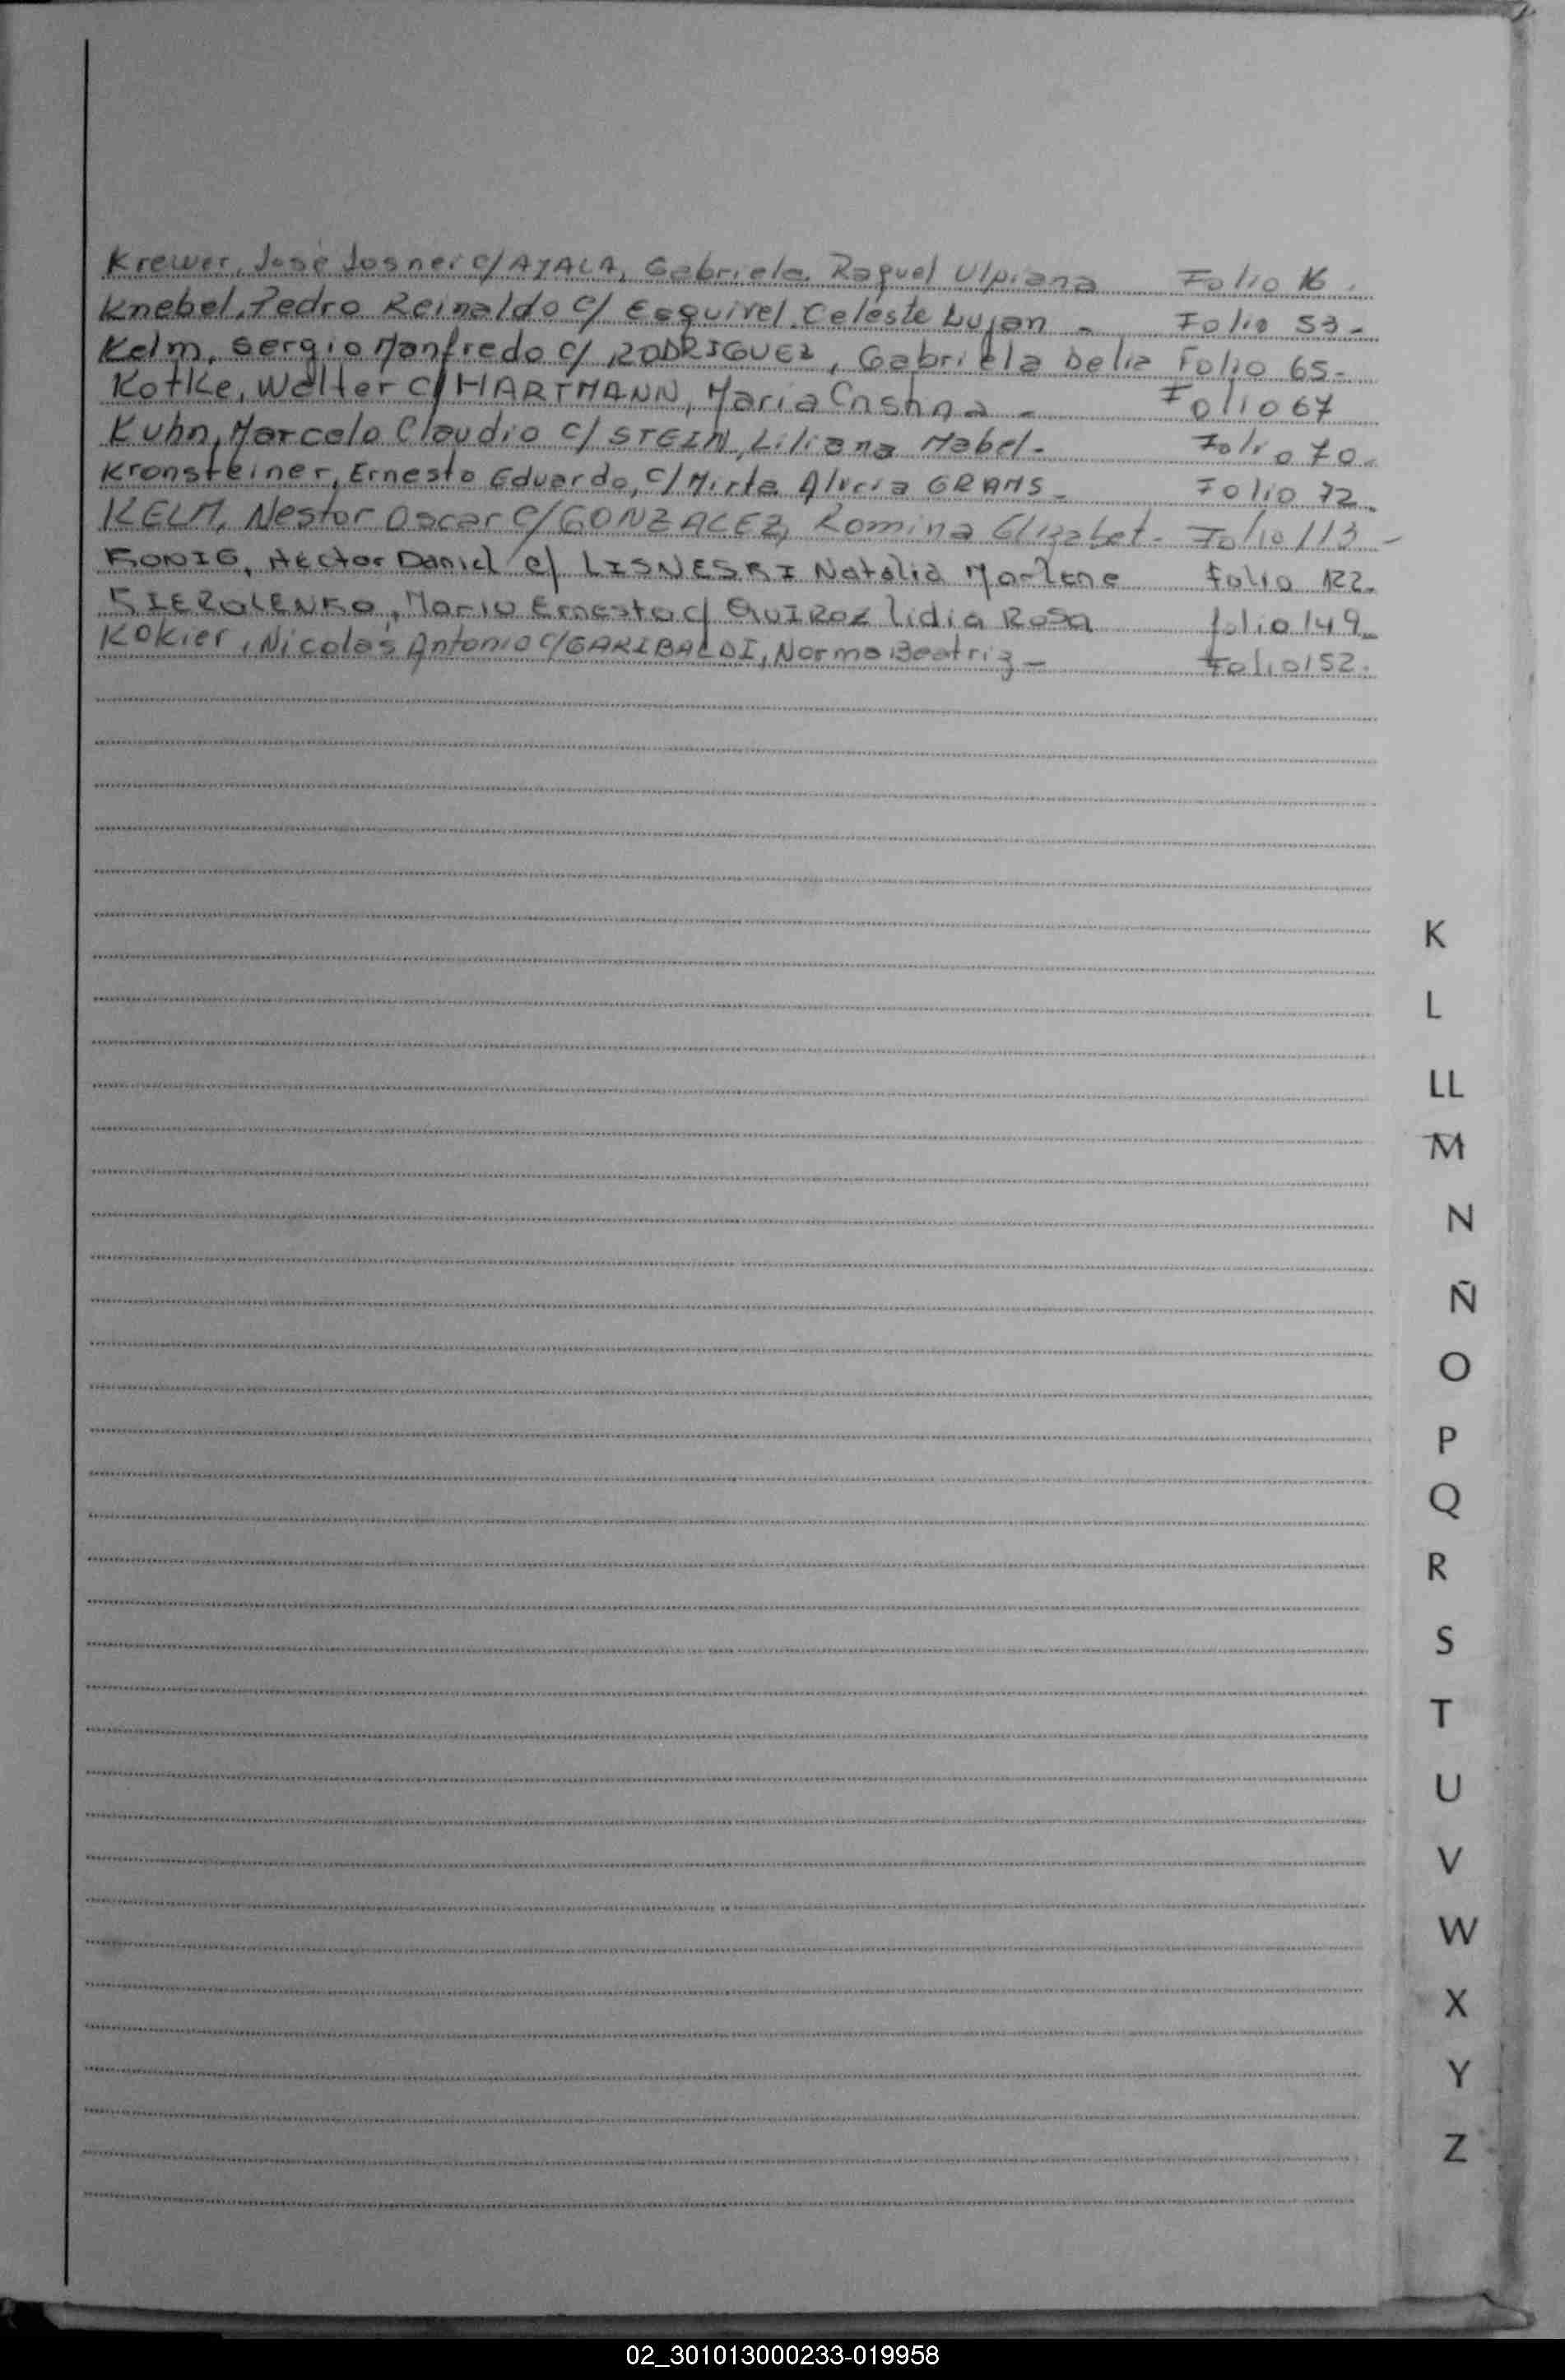 Krewer, José Josner c/ AYALA, Gabriela Raquel Ulpiana Folio 16.
Knebel, Pedro Reinaldo c/ Esquivel Celeste Lujan - Folio 53-
Kelm, Sergio Manfredo c/ RODRIGUEZ, Gabriela Delia Folio 65-
Kotke, Walter c/ HARTMANN, Maria Cristina - Folio 67
Kuhn, Marcelo Claudio c/ STEIN, Liliana Mabel- Folio 70-
Kronsteiner, Ernesto Eduardo, c/ Mirta Alicia GRAMS- Folio 72-
KELM, Nestor Oscar c/ GONZALEZ, Romina Elizabet- Folio 113-
KONIG, Hector Daniel c/ LISNESKI Natalia Marlene Folio 122-
KIEROLENKO, Mario Ernesto c/ QUIROZ Lidia Rosa folio 149-
Kokier, Nicolás Antonio c/ GARIBALDI, Norma Beatriz- Folio 152.
K
L
LL
M
N
Ñ
O
P
Q
R
S
T
U
V
W
X
Y
Z
02_301013000233-019958